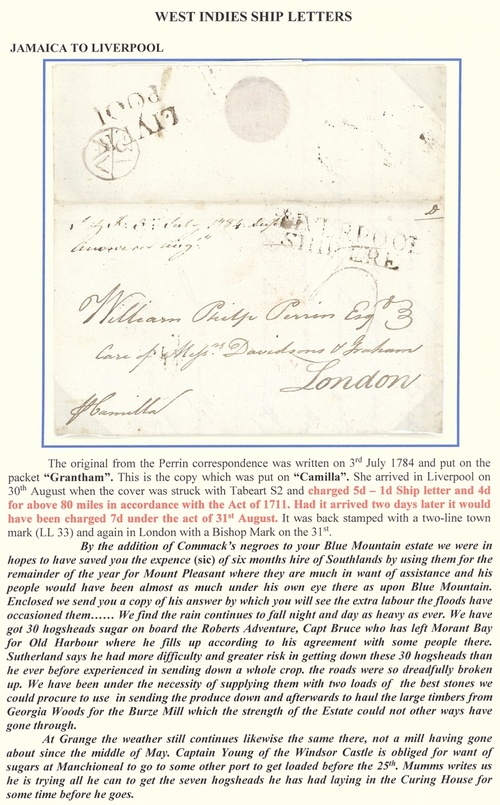 WEST INDIES SHIP LETTERS
JAMAICA TO LIVERPOOL
LIVER
POOL
LIVERPOOL
SHIP LRE
William Philp Perrin Esqr
Care of Messrs Davidsons & Graham
London
Camilla
The original from the Perrin correspondence was written on 3rd July 1784 and put on the
packet “Grantham”. This is the copy which was put on “Camilla”. She arrived in Liverpool on
30th August when the cover was struck with Tabeart S2 and charged 5d – 1d Ship letter and 4d
for above 80 miles in accordance with the Act of 1711. Had it arrived two days later it would
have been charged 7d under the act of 31st August. It was back stamped with a two-line town
mark (LL 33) and again in London with a Bishop Mark on the 31st.
By the addition of Commack's negroes to your Blue Mountain estate we were in
hopes to have saved you the expence (sic) of six months hire of Southlands by using them for the
remainder of the year for Mount Pleasant where they are much in want of assistance and his
people would have been almost as much under his own eye there as upon Blue Mountain.
Enclosed we send you a copy of his answer by which you will see the extra labour the floods have
occasioned them…… We find the rain continues to fall night and day as heavy as ever. We have
got 30 hogsheads sugar on board the Roberts Adventure, Capt Bruce who has left Morant Bay
for Old Harbour where he fills up according to his agreement with some people there.
Sutherland says he had more difficulty and greater risk in getting down these 30 hogsheads than
he ever before experienced in sending down a whole crop. the roads were so dreadfully broken
up. We have been under the necessity of supplying them with two loads of the best stones we
could procure to use in sending the produce down and afterwards to haul the large timbers from
Georgia Woods for the Burze Mill which the strength of the Estate could not other ways have
gone through.
At Grange the weather still continues likewise the same there, not a mill having gone
about since the middle of May. Captain Young of the Windsor Castle is obliged for want of
sugars at Manchioneal to go to some other port to get loaded before the 25th. Mumms writes us
he is trying all he can to get the seven hogsheads he has had laying in the Curing House for
some time before he goes.